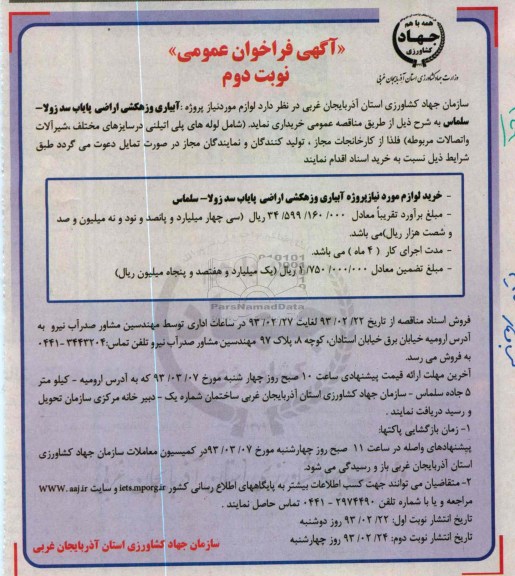 همه با هم
جهاد
کشاورزی
وزارت جهاد کشاورزی استان آذربایجان غربی
«آگهی فراخوان عمومی»
نوبت دوم
سازمان جهاد کشاورزی استان آذربایجان غربی در نظر دارد لوازم موردنیاز پروژه :آبیاری وزهکشی اراضی پایاب سد زولا–
سلماس به شرح ذیل از طریق مناقصه عمومی خریداری نماید. (شامل لوله های پلی اتیلنی درسایزهای مختلف ،شیرآلات
واتصالات مربوطه) فلذا از کارخانجات مجاز ، تولید کنندگان و نمایندگان مجاز در صورت تمایل دعوت می گردد طبق
شرایط ذیل نسبت به خرید اسناد اقدام نمایند
- خرید لوازم مورد نیازپروژه آبیاری وزهکشی اراضی پایاب سد زولا– سلماس
- مبلغ برآورد تقریباً معادل ۳۴/۵۹۹/۱۶۰/۰۰۰ ریال (سی چهار میلیارد و پانصد و نود و نه میلیون و صد
و شصت هزار ریال)می باشد.
- مدت اجرای کار ( ۴ ماه ) می باشد.
- مبلغ تضمین معادل ۱/۷۵۰/۰۰۰/۰۰۰ ریال (یک میلیارد و هفتصد و پنجاه میلیون ریال)
ParsNamadData
فروش اسناد مناقصه از تاریخ ۹۳/۰۲/۲۲ لغایت ۹۳/۰۲/۲۷ در ساعات اداری توسط مهندسین مشاور صدرآب نیرو به
آدرس ارومیه خیابان برق خیابان استادان، کوچه ۸، پلاک ۹۷ مهندسین مشاور صدرآب نیرو تلفن تماس:۳۴۴۳۲۰۴-۰۴۴۱
به فروش می رسد.
آخرین مهلت ارائه قیمت پیشنهادی ساعت ۱۰ صبح روز چهار شنبه مورخ ۹۳/۰۳/۰۷ که به آدرس ارومیه - کیلو متر
۵ جاده سلماس - سازمان جهاد کشاورزی استان آذربایجان غربی ساختمان شماره یک - دبیر خانه مرکزی سازمان تحویل
و رسید دریافت نمایند .
۱- زمان بازگشایی پاکتها:
پیشنهادهای واصله در ساعت ۱۱ صبح روز چهارشنبه مورخ ۹۳/۰۳/۰۷در کمیسیون معاملات سازمان جهاد کشاورزی
استان آذربایجان غربی باز و رسیدگی می شود.
۲- متقاضیان می توانند جهت کسب اطلاعات بیشتر به پایگاههای اطلاع رسانی کشور iets.mporg.ir و سایت WWW.aaj.ir
مراجعه و یا با شماره تلفن ۲۹۷۴۴۹۰ - ۰۴۴۱ تماس حاصل نمایند .
تاریخ انتشار نوبت اول: ۹۳/۰۲/۲۲ روز دوشنبه
تاریخ انتشار نوبت دوم: ۹۳/۰۲/۲۴ روز چهارشنبه
سازمان جهاد کشاورزی استان آذربایجان غربی